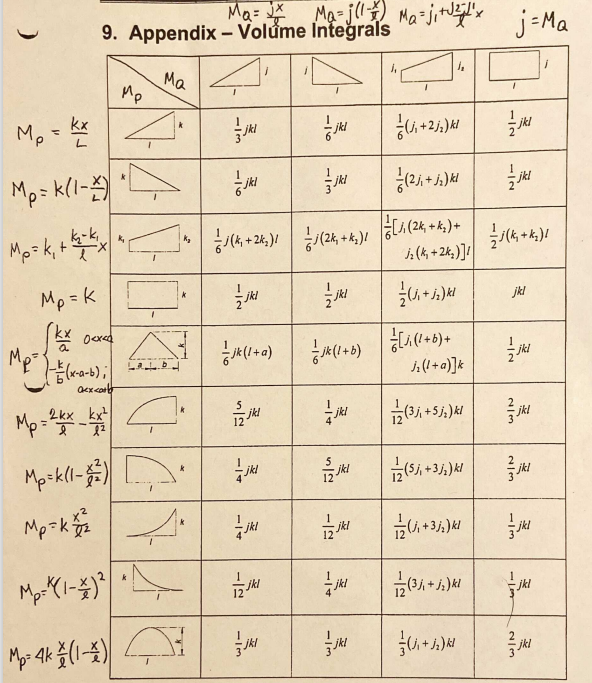 M_Q = jx/ℓ M_Q = j(1-x/ℓ) M_Q = j₁ + (j₂-j₁)/ℓ x j = M_Q
9. Appendix – Volume Integrals
M_P M_Q j l j l j₁ j₂ l j l
M_P = kx/L k l 1/3 jkl 1/6 jkl 1/6 (j₁ + 2j₂)kl 1/2 jkl
M_P = k(1-x/L) k l 1/6 jkl 1/3 jkl 1/6 (2j₁ + j₂)kl 1/2 jkl
M_P = k₁ + (k₂-k₁)/ℓ x k₁ k₂ l 1/6 j(k₁ + 2k₂)l 1/6 j(2k₁ + k₂)l 1/6 [j₁(2k₁ + k₂) + j₂(k₁ + 2k₂)]l 1/2 j(k₁ + k₂)l
M_P = k k l 1/2 jkl 1/2 jkl 1/2 (j₁ + j₂)kl jkl
M_P = { kx/a 0<x<a -k/b (x-a-b); a<x<a+b k a b 1/6 jk(l + a) 1/6 jk(l + b) 1/6 [j₁(l + b) + j₂(l + a)]k 1/2 jkl
M_P = 2kx/ℓ - kx²/ℓ² k l 5/12 jkl 1/4 jkl 1/12 (3j₁ + 5j₂)kl 2/3 jkl
M_P = k(1-x²/ℓ²) k l 1/4 jkl 5/12 jkl 1/12 (5j₁ + 3j₂)kl 2/3 jkl
M_P = k x²/ℓ² k l 1/4 jkl 1/12 jkl 1/12 (j₁ + 3j₂)kl 1/3 jkl
M_P = k(1-x/ℓ)² k l 1/12 jkl 1/4 jkl 1/12 (3j₁ + j₂)kl 1/3 jkl
M_P = 4k x/ℓ (1-x/ℓ) k l 1/3 jkl 1/3 jkl 1/3 (j₁ + j₂)kl 2/3 jkl